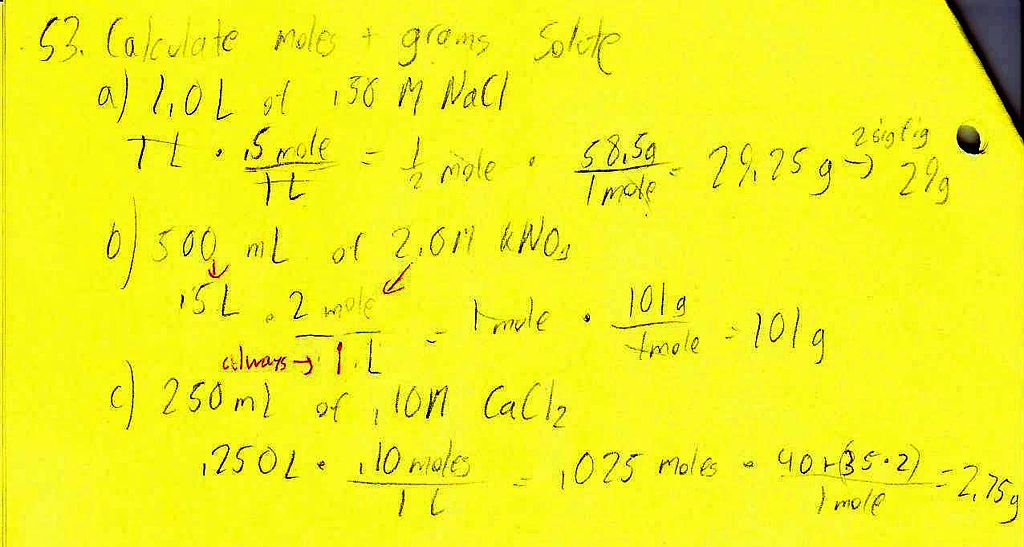 53. Calculate moles + grams Solute
a) 1,0L of ,50 M NaCl
2 sig fig
1L · ,5 mole / 1L = 1/2 mole · 58,5g / 1 mole = 29,25g → 29g
b) 500 mL of 2,0M KNO3
,5L · 2 mole / 1.L = 1 mole · 101g / 1 mole = 101g
always →
c) 250ml of ,10M CaCl2
,250L · ,10 moles / 1L = ,025 moles · 40+(35·2) / 1 mole = 2,75g